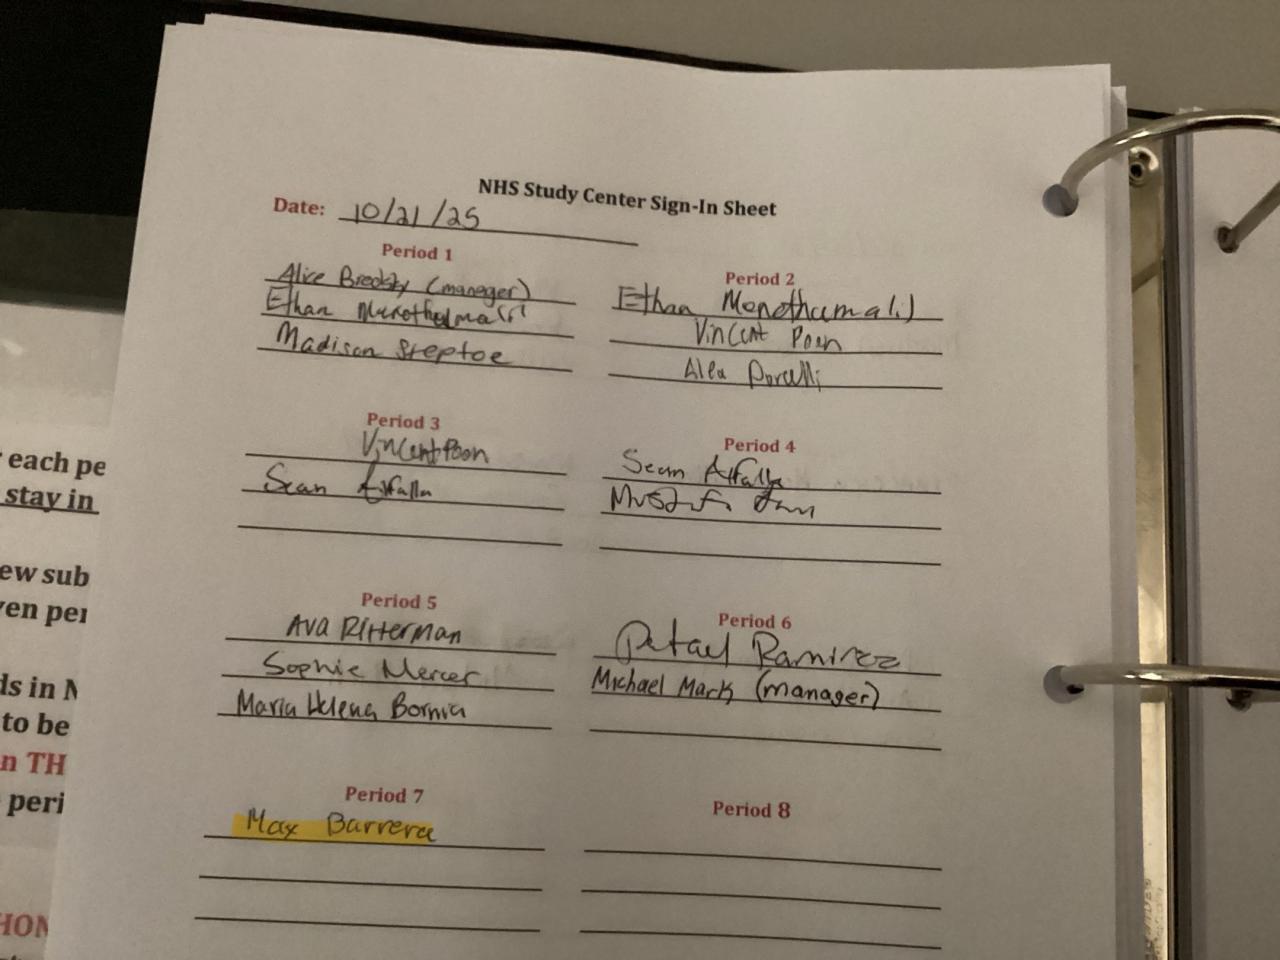 NHS Study Center Sign-In Sheet
Date: 10/21/25
Period 1
Alice Brodsky (manager)
Ethan
Madison Steptoe
Period 2
Ethan Monothumalil
Vincent Poon
Alex Porcelli
Period 3
Vincent Poon
Sean
Period 4
Sean
Period 5
Ava Ritterman
Sophie Mercer
Maria Helena Bornia
Period 6
Ramirez
Michael Mark (manager)
Period 7
Max Barrera
Period 8
each pe
stay in
ew sub
ven per
ds in N
to be
n TH
peri
HON